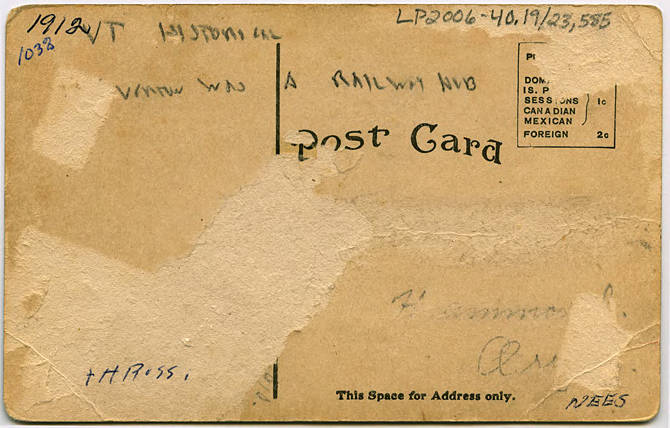 1912
1038
VT HISTORICAL
LP2006-40.19/23,585
VERNON WAS A RAILWAY HUB
Post Card
DOM
IS. P
SESSIONS
CANADIAN
MEXICAN
1c
FOREIGN 2c
H Ross.
This Space for Address only.
NEES